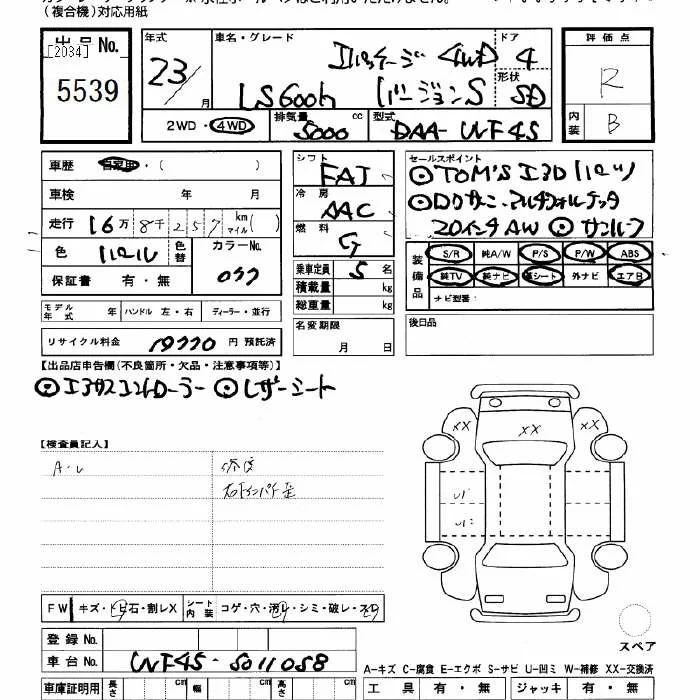 (複合機)対応用紙
出品No.
[2034]
5539
年式
23/
月
車名・グレード
エパッケージ 4WD
LS600h
バージョンS
ドア
4
形状
SD
2WD・4WD
排気量
5000
cc
型式
DAA-UVF45
評価点
R
内装
B
車歴
自家用・( )
車検
年 月
走行
16万8千257 km マイル( )
色
パール
色替
カラーNo.
077
保証書
有・無
モデル年式
年
ハンドル 左・右
ディーラー・並行
リサイクル料金
19770
円 預託済
シフト
FAT
冷房
AAC
燃料
G
乗車定員
5
名
積載量
kg
総重量
kg
名変期限
月 日
セールスポイント
◎TOM'S エアロ
20インチAW ◎サンルーフ
装備品
S/R 純A/W P/S P/W ABS
純TV 純ナビ 革シート 外ナビ エアB
ナビ型番:
後日品
【出品店申告欄(不良箇所・欠品・注意事項等)】
◎エアサスコントローラー ◎レザーシート
【検査員記入】
A・U
修復
右Fインパネ歪
FW
キズ・トビ石・割レX
シート内装
コゲ・穴・汚レ・シミ・破レ・スレ
登録No.
車台No.
UVF45-5011058
車庫証明用
長さ
cm
幅
cm
高さ
cm
XX
XX
XX
スペア
A-キズ C-腐食 E-エクボ S-サビ U-凹ミ W-補修 XX-交換済
工具
有・無
ジャッキ
有・無